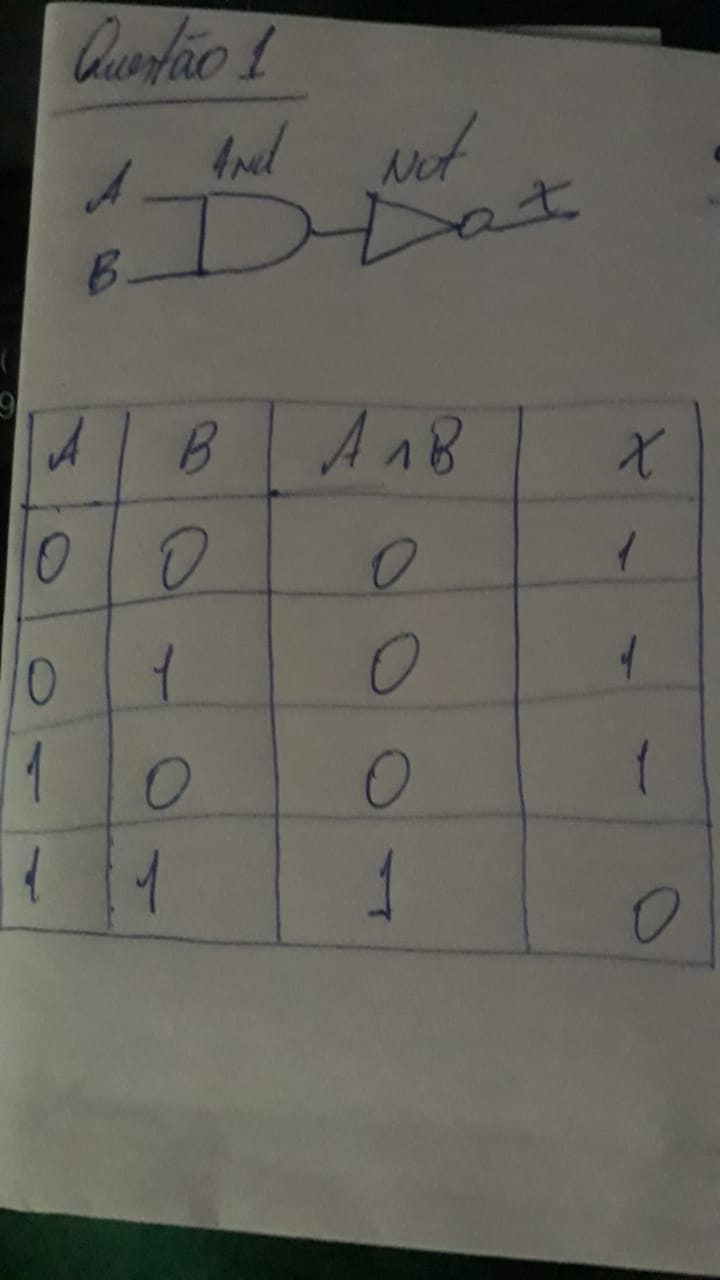 Questão 1
And Not
A
X
B
A B A ∧ B X
0 0 0 1
0 1 0 1
1 0 0 1
1 1 1 0
9